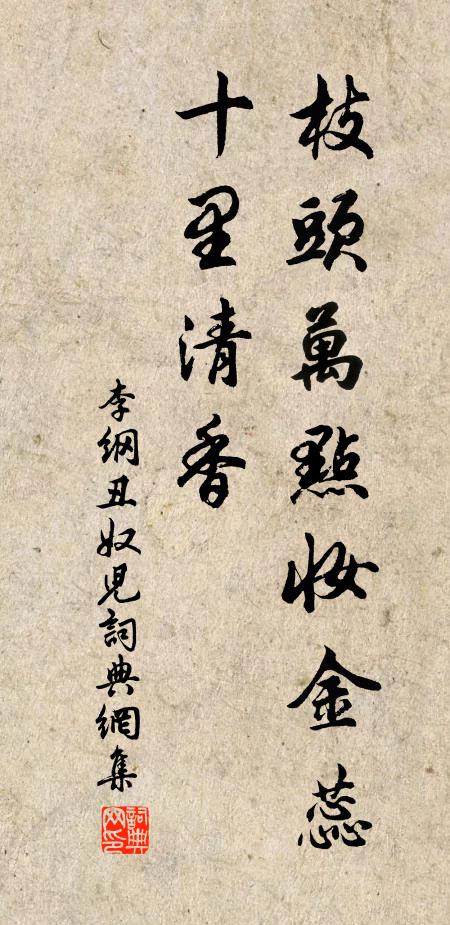 枝頭萬點妝金蕊
十里清香
李綱丑奴兒詞典網集
詞典網印